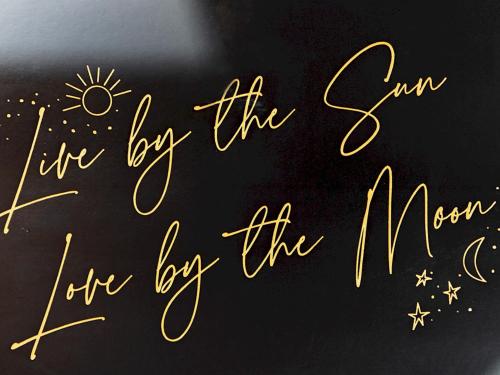 Live by the Sun
Love by the Moon